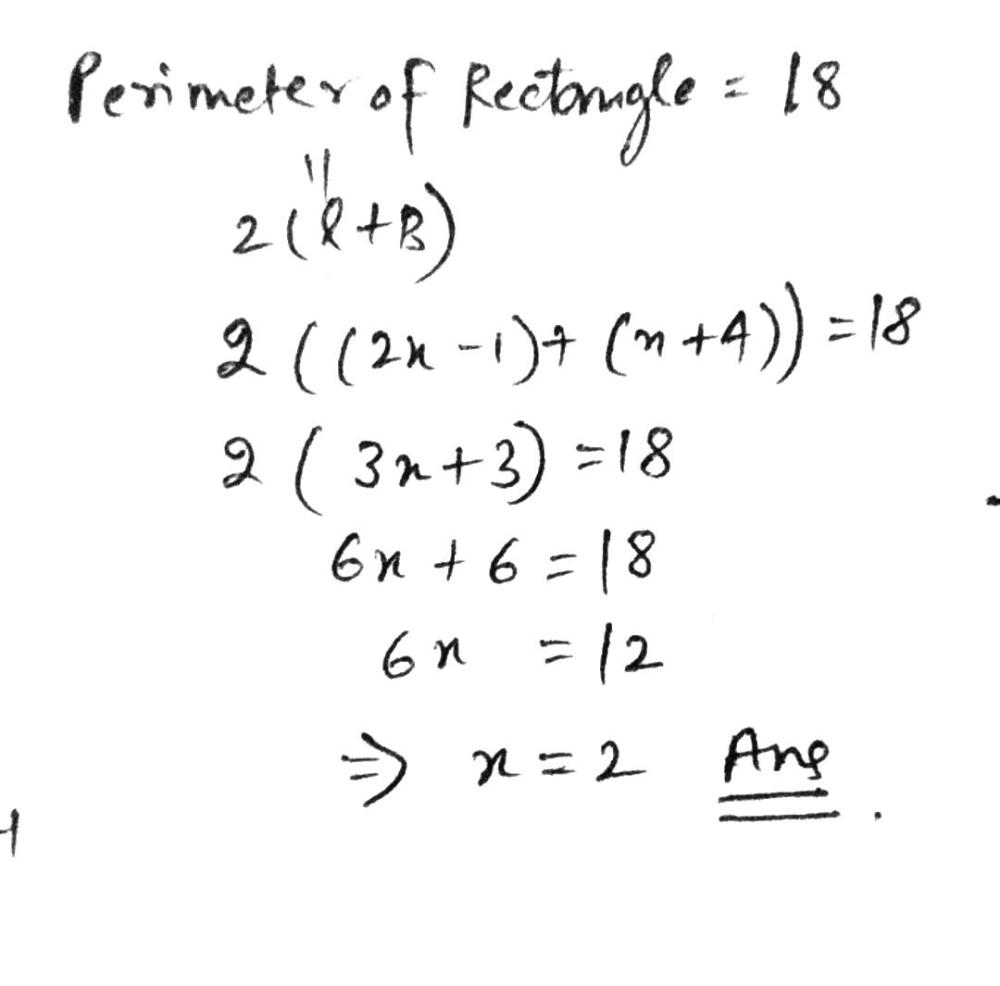 Perimeter of Rectangle = 18
||
2(l+B)
2((2x-1)+(x+4))=18
2(3x+3)=18
6x+6=18
6x =12
⇒ x=2 Ans.